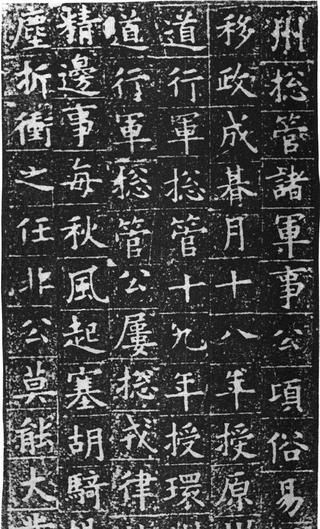 州捴管諸軍事公頃俗易
移政成朞月十八年授原
道行軍捴管十九年授環
道行軍捴管公屢捴戎律
精邊事每秋風起塞胡騎
塵折衝之任非公莫能大